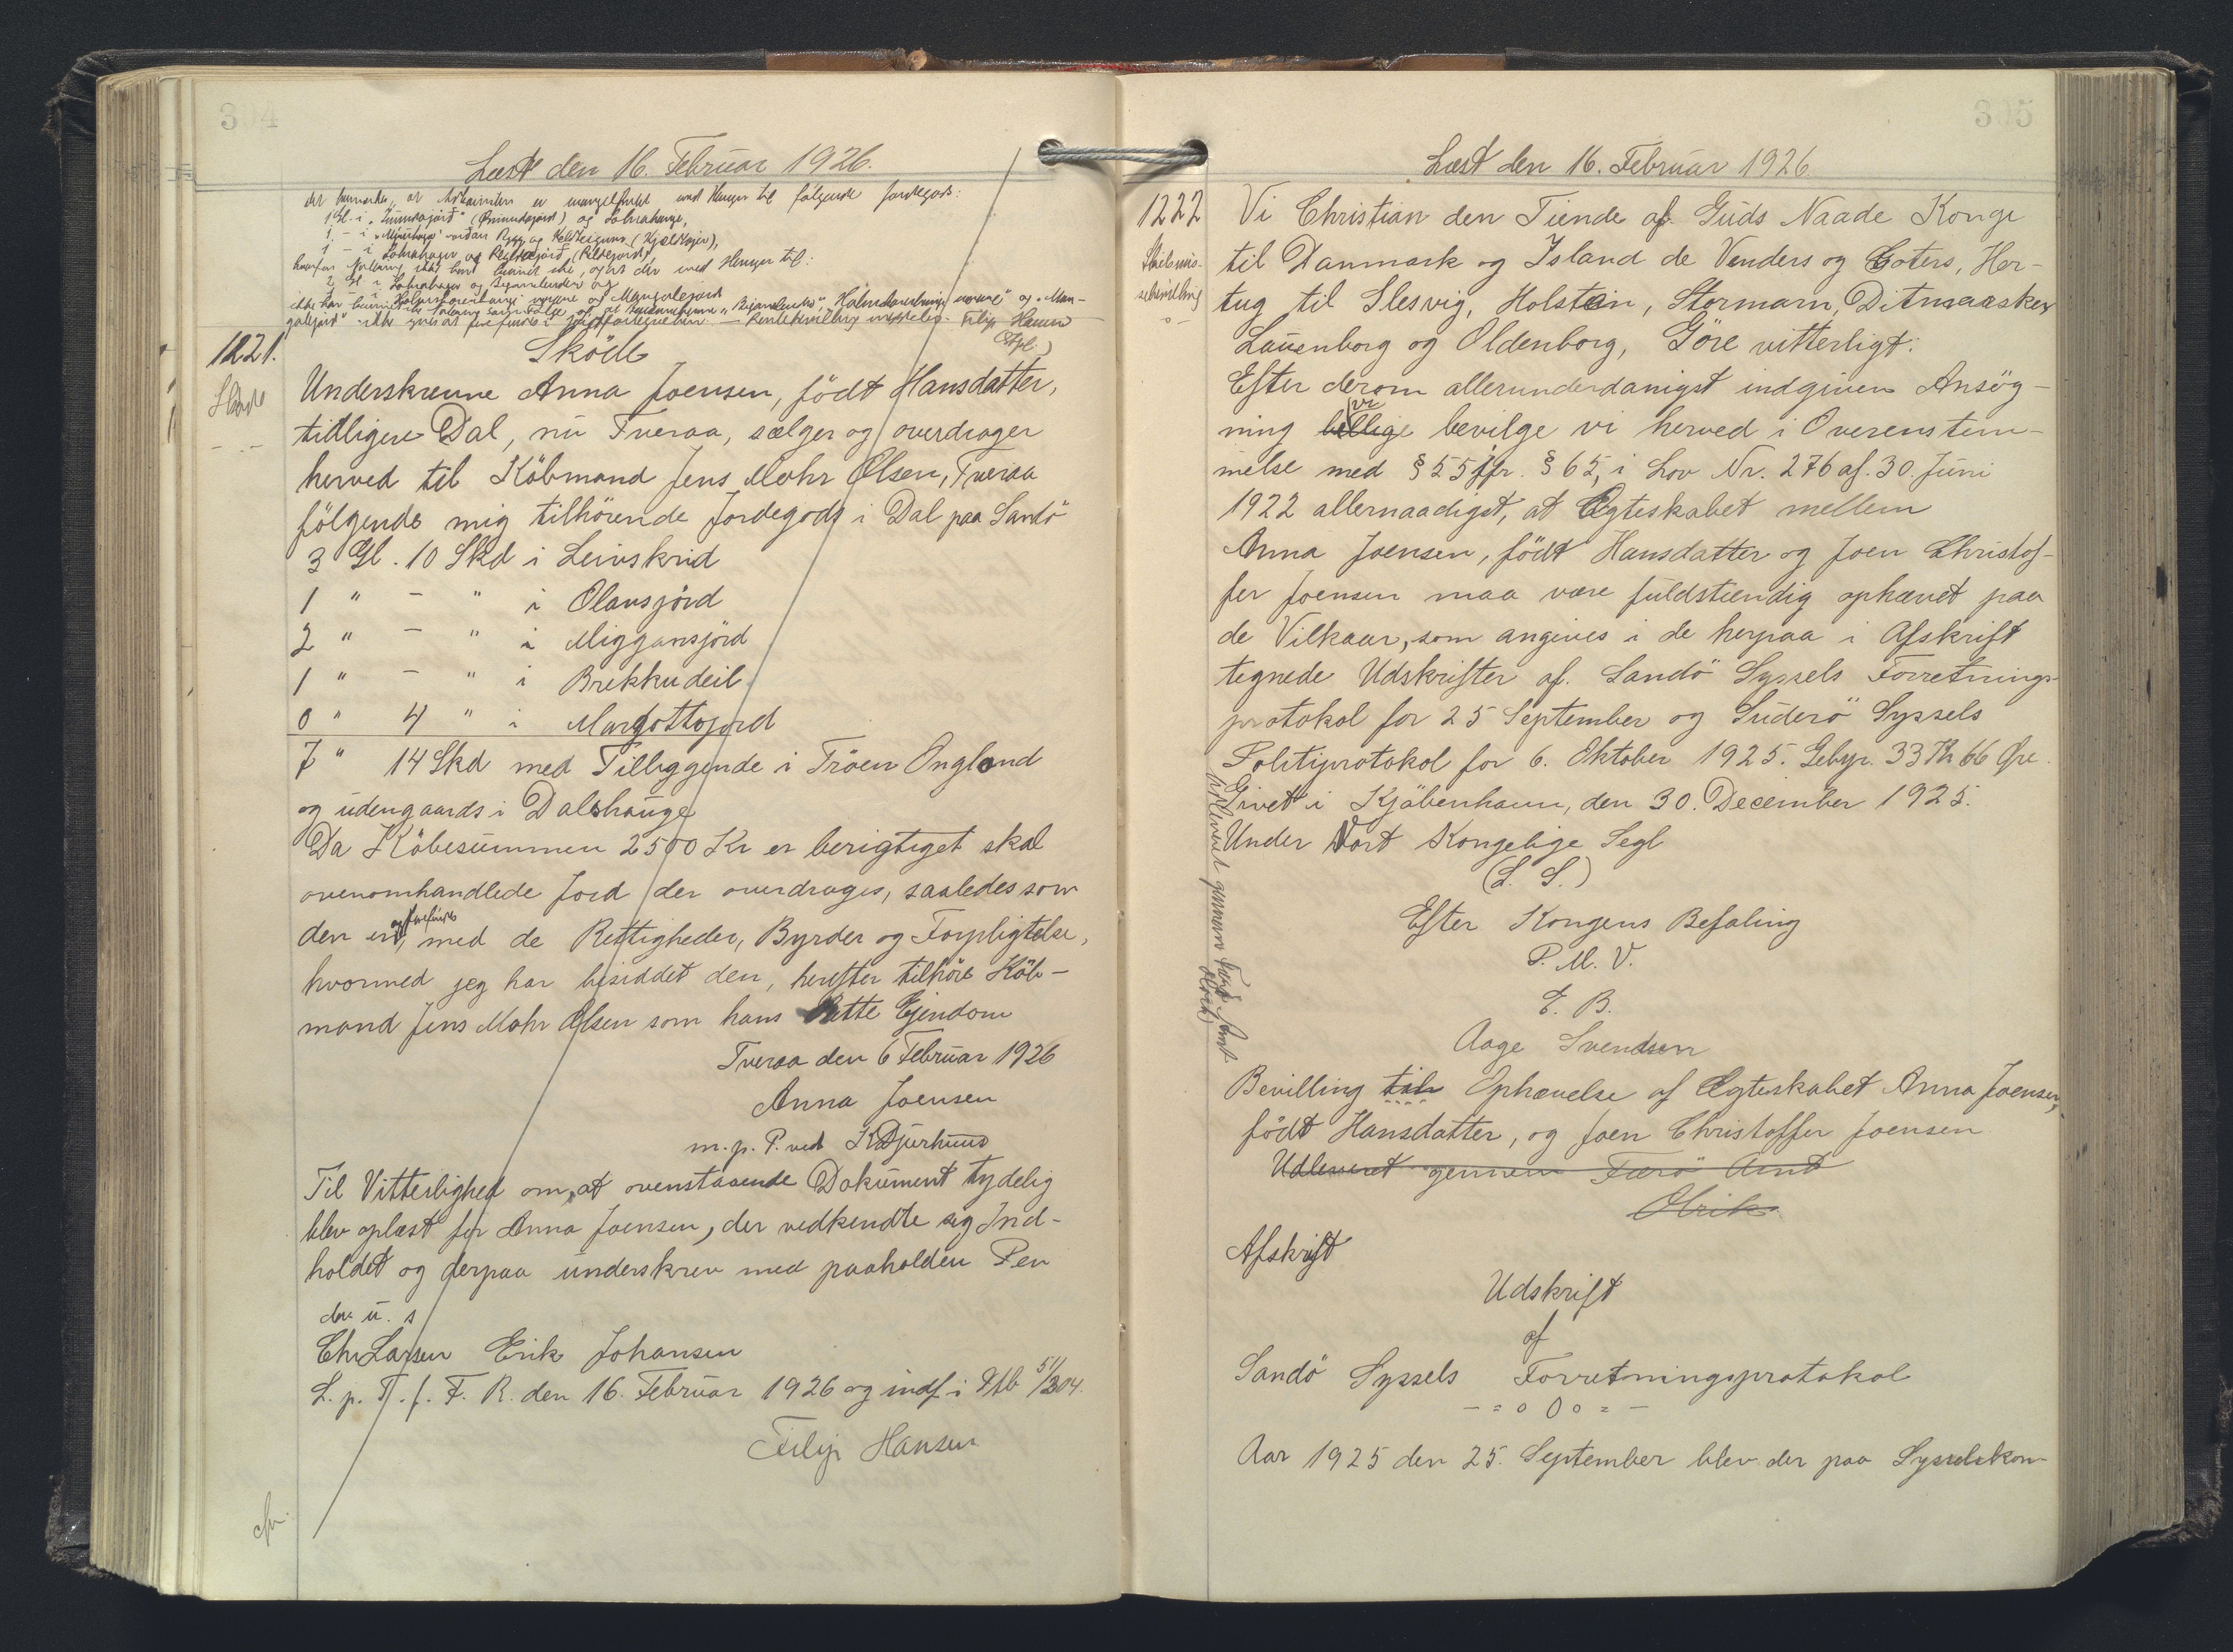 304
Læst den 16. Februar 1926.
der bemærkes, at Adkomsten er mangelfuld med Hensyn til følgende Jordegods:
1 Gl. i og Lohrahauge,
1 - i
1 - i Lohrahauge og
hvorfor ikke, og at der med Hensyn til:
2 Gl i Lohrahauge og
ikke har og "Man-
galejörd" ikke Filip Hansen
1221.
Sköde
Sköde
Underskrevne Anna Joensen, födt Hansdatter,
tidligere Dal, nu Tveraa, sælger og overdrager
herved til Köbmand Jens Mohr Olsen, Tveraa
fölgende mig tilhörende Jordegods i Dal paa Sandö
3 Gl. 10 Skd i Leivskrid
1 " - " i Olansjörd
2 " - " i Miggansjörd
1 " - " i Brekkudeil
0 " 4 " i Margottojord
7 " 14 Skd med Tilliggende i Tröen Ongland
og udengaards i Dalshauge
Da Köbesummen 2500 Kr er berigtiget skal
ovenomhandlede Jord der overdrages, saaledes som
den er og forefindes, med de Rettigheder, Byrder og Forpligtelse,
hvormed jeg har besiddet den, herefter tilhöre Köb-
mand Jens Mohr Olsen som hans Rette Ejendom
Tveraa den 6 Februar 1926
Anna Joensen
m. p. P. ved K Djurhuus
Til Vitterlighed om, at ovenstaaende Dokument tydelig
blev oplæst for Anna Joensen, der vedkendte sig Ind-
holdet og derpaa underskrev med paaholden Pen
d. u. s
Chr Larsen Erik Johansen
L. p. T. f. F. R. den 16. Februar 1926 og indf. i Ptb 51/304.
Filip Hansen
cfr.
305
Læst den 16. Februar 1926
1222
Skilsmis-
sebevilling
Vi Christian den Tiende af Guds Naade Konge
til Danmark og Island de Venders og Goters, Her-
tug til Slesvig, Holstein, Stormarn, Ditmarsken
Lauenborg og Oldenborg, Göre vitterligt:
Efter derom allerunderdanigst indgiven Ansög-
ning billige ville bevilge vi herved i Overenstem-
melse med § 55 jfr. § 65, i Lov Nr. 276 af. 30. Juni
1922 allernaadigst, at Ægteskabet mellem
Anna Joensen, födt Hansdatter og Joen Christof-
fer Joensen maa være fuldstændig ophævet paa
de Vilkaar, som angives i de herpaa i Afskrift
tegnede Udskrifter af. Sandö Syssels Forretnings-
protokol for 25 September og Suderö Syssels
Politiprotokol for 6. Oktober 1925. Gebyr. 33 Kr 66 Øre.
Givet i Kjöbenhavn, den 30. December 1925.
Under Vort Kongelige Segl
(L. S.)
Efter Kongens Befaling
P. M. V.
E. B.
Aage Svendsen
Udleveret gennem Færø Amt
Olrik
Bevilling til Ophævelse af Ægteskabet Anna Joensen,
födt Hansdatter, og Joen Christoffer Joensen
Udleveret gennem Færö Amt
Olrik
Afskrift
Udskrift
af
Sandö Syssels Forretningsprotokol
- = o 0 o = -
Aar 1925 den 25. September blev der paa Sysselskon-